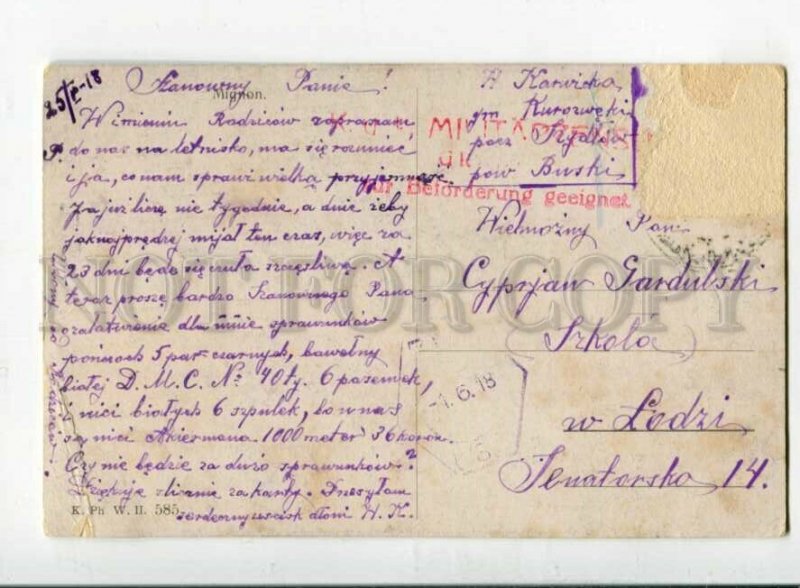 25/V-18
Szanowny Panie!
Mignon.
W imieniu Rodziców zapraszam
P. do nas na letnisko, ma się rozumieć
i ja, co nam sprawi wielką przyjemność.
Ja już liczę nie tygodnie, a dnie żeby
jaknajprędzej mijał ten czas, więc za
23 dni będę się czuła szczęśliwą. A
teraz proszę bardzo Szanownego Pana
o załatwienie dla mnie sprawunków
pończoch 5 par czarnych, bawełny
białej D.M.C. № 40ty. 6 pasemek,
i nici białych 6 szpulek, bo u nas
są nici Akermana 1000 meter 36 koron.
Czy nie będzie za dużo sprawunków?
Dziękuję ślicznie za kartę. Przesyłam
serdeczny uścisk dłoni H. K.
K. Ph. W. II. 585.
H Karwicka
gm Kurozwęki
pocz
pow Buski
MILITÄR
zur Beförderung geeignet
Wielmożny Pan
Cyprjan Gardulski
(Szkoła)
w Łodzi
Senatorska 14.
1.6.18
NOT FOR COPY